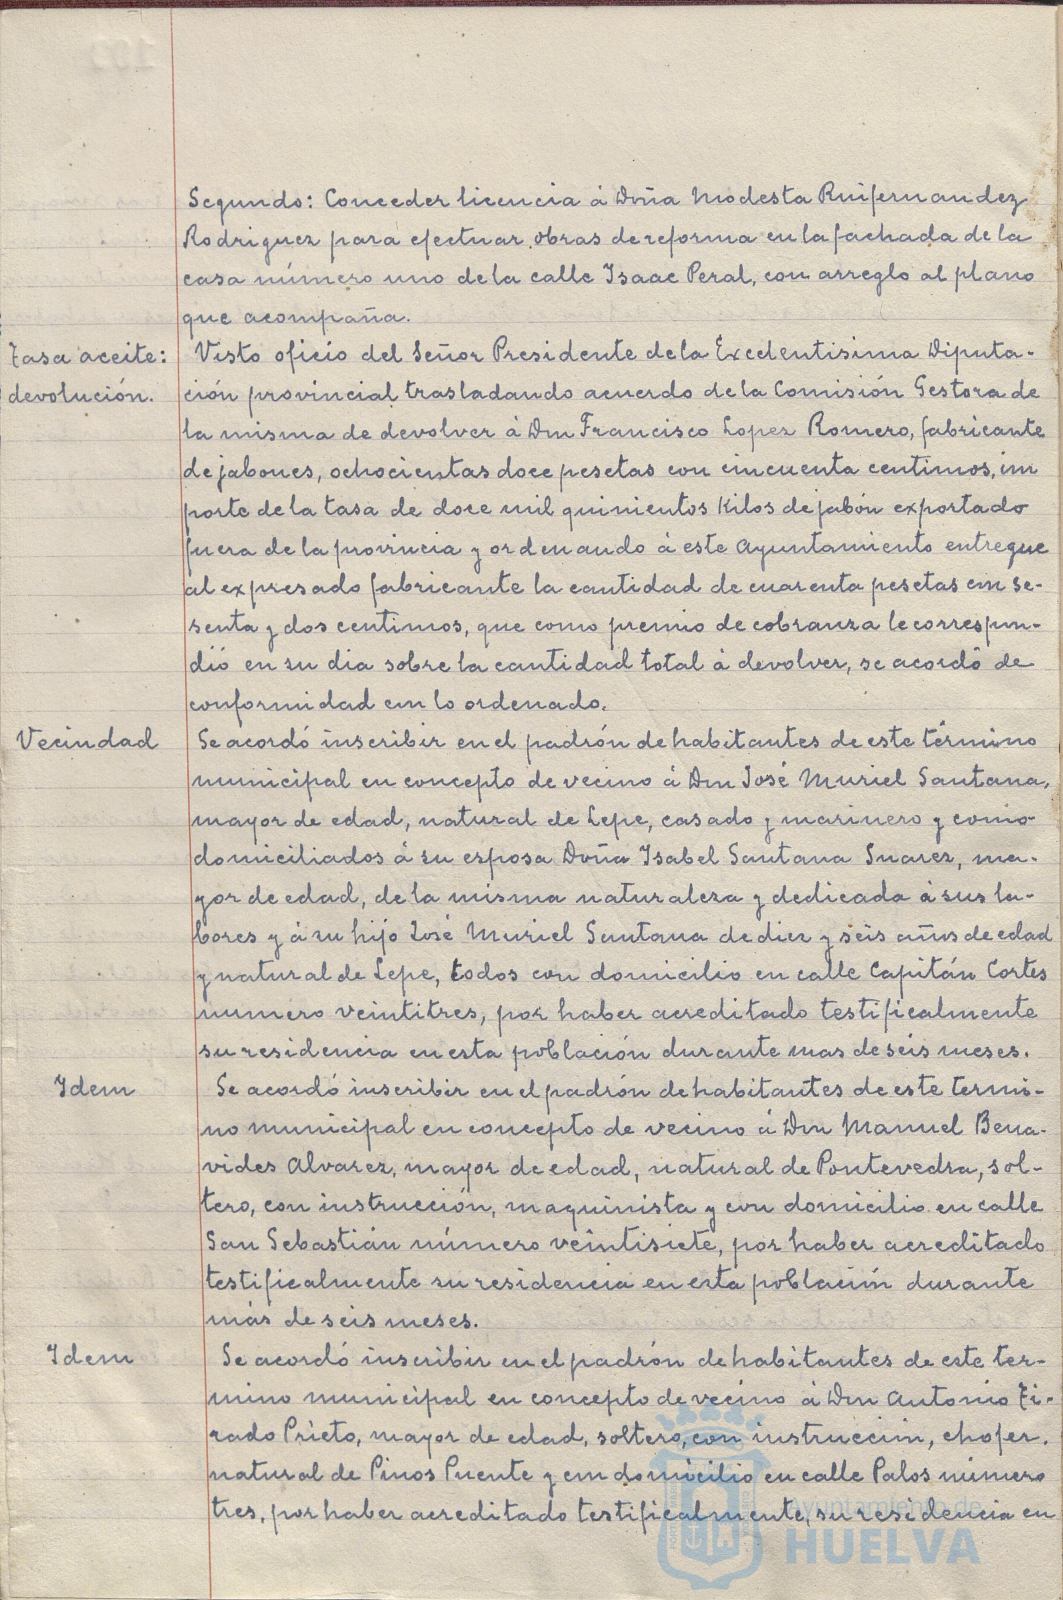 Segundo: Conceder licencia á Doña Modesta Ruifernandez
Rodriguez para efectuar obras de reforma en la fachada de la
casa número uno de la calle Isaac Peral, con arreglo al plano
que acompaña.
Tasa aceite:
devolución.
Visto oficio del Señor Presidente de la Excelentisima Diputa-
ción provincial trasladando acuerdo de la Comisión Gestora de
la misma de devolver á Don Francisco Lopez Romero, fabricante
de jabones, ochocientas doce pesetas con cincuenta centimos, im
porte de la tasa de doce mil quinientos kilos de jabón exportado
fuera de la provincia y ordenando á este Ayuntamiento entregue
al expresado fabricante la cantidad de cuarenta pesetas con se-
senta y dos centimos, que como premio de cobranza le correspon-
dió en su dia sobre la cantidad total á devolver, se acordó de
conformidad con lo ordenado.
Vecindad
Se acordó inscribir en el padrón de habitantes de este término
municipal en concepto de vecino á Don José Muriel Santana,
mayor de edad, natural de Lepe, casado y marinero y como
domiciliados á su esposa Doña Isabel Santana Suarez, ma-
yor de edad, de la misma naturaleza y dedicada á sus la-
bores y á su hijo José Muriel Santana de diez y seis años de edad
y natural de Lepe, todos con domicilio en calle Capitán Cortes
numero veintitres, por haber acreditado testificalmente
su residencia en esta población durante mas de seis meses.
Idem
Se acordó inscribir en el padrón de habitantes de este termi-
no municipal en concepto de vecino á Don Manuel Bena-
vides Alvarez, mayor de edad, natural de Pontevedra, sol-
tero, con instrucción, maquinista y con domicilio en calle
San Sebastián número veintisiete, por haber acreditado
testificalmente su residencia en esta población durante
más de seis meses.
Idem
Se acordó inscribir en el padrón de habitantes de este ter-
mino municipal en concepto de vecino á Don Antonio Ti-
rado Prieto, mayor de edad, soltero, con instrucción, chofer,
natural de Pinos Puente y con domicilio en calle Palos número
tres, por haber acreditado testificalmente, su residencia en
Ayuntamiento de
HUELVA